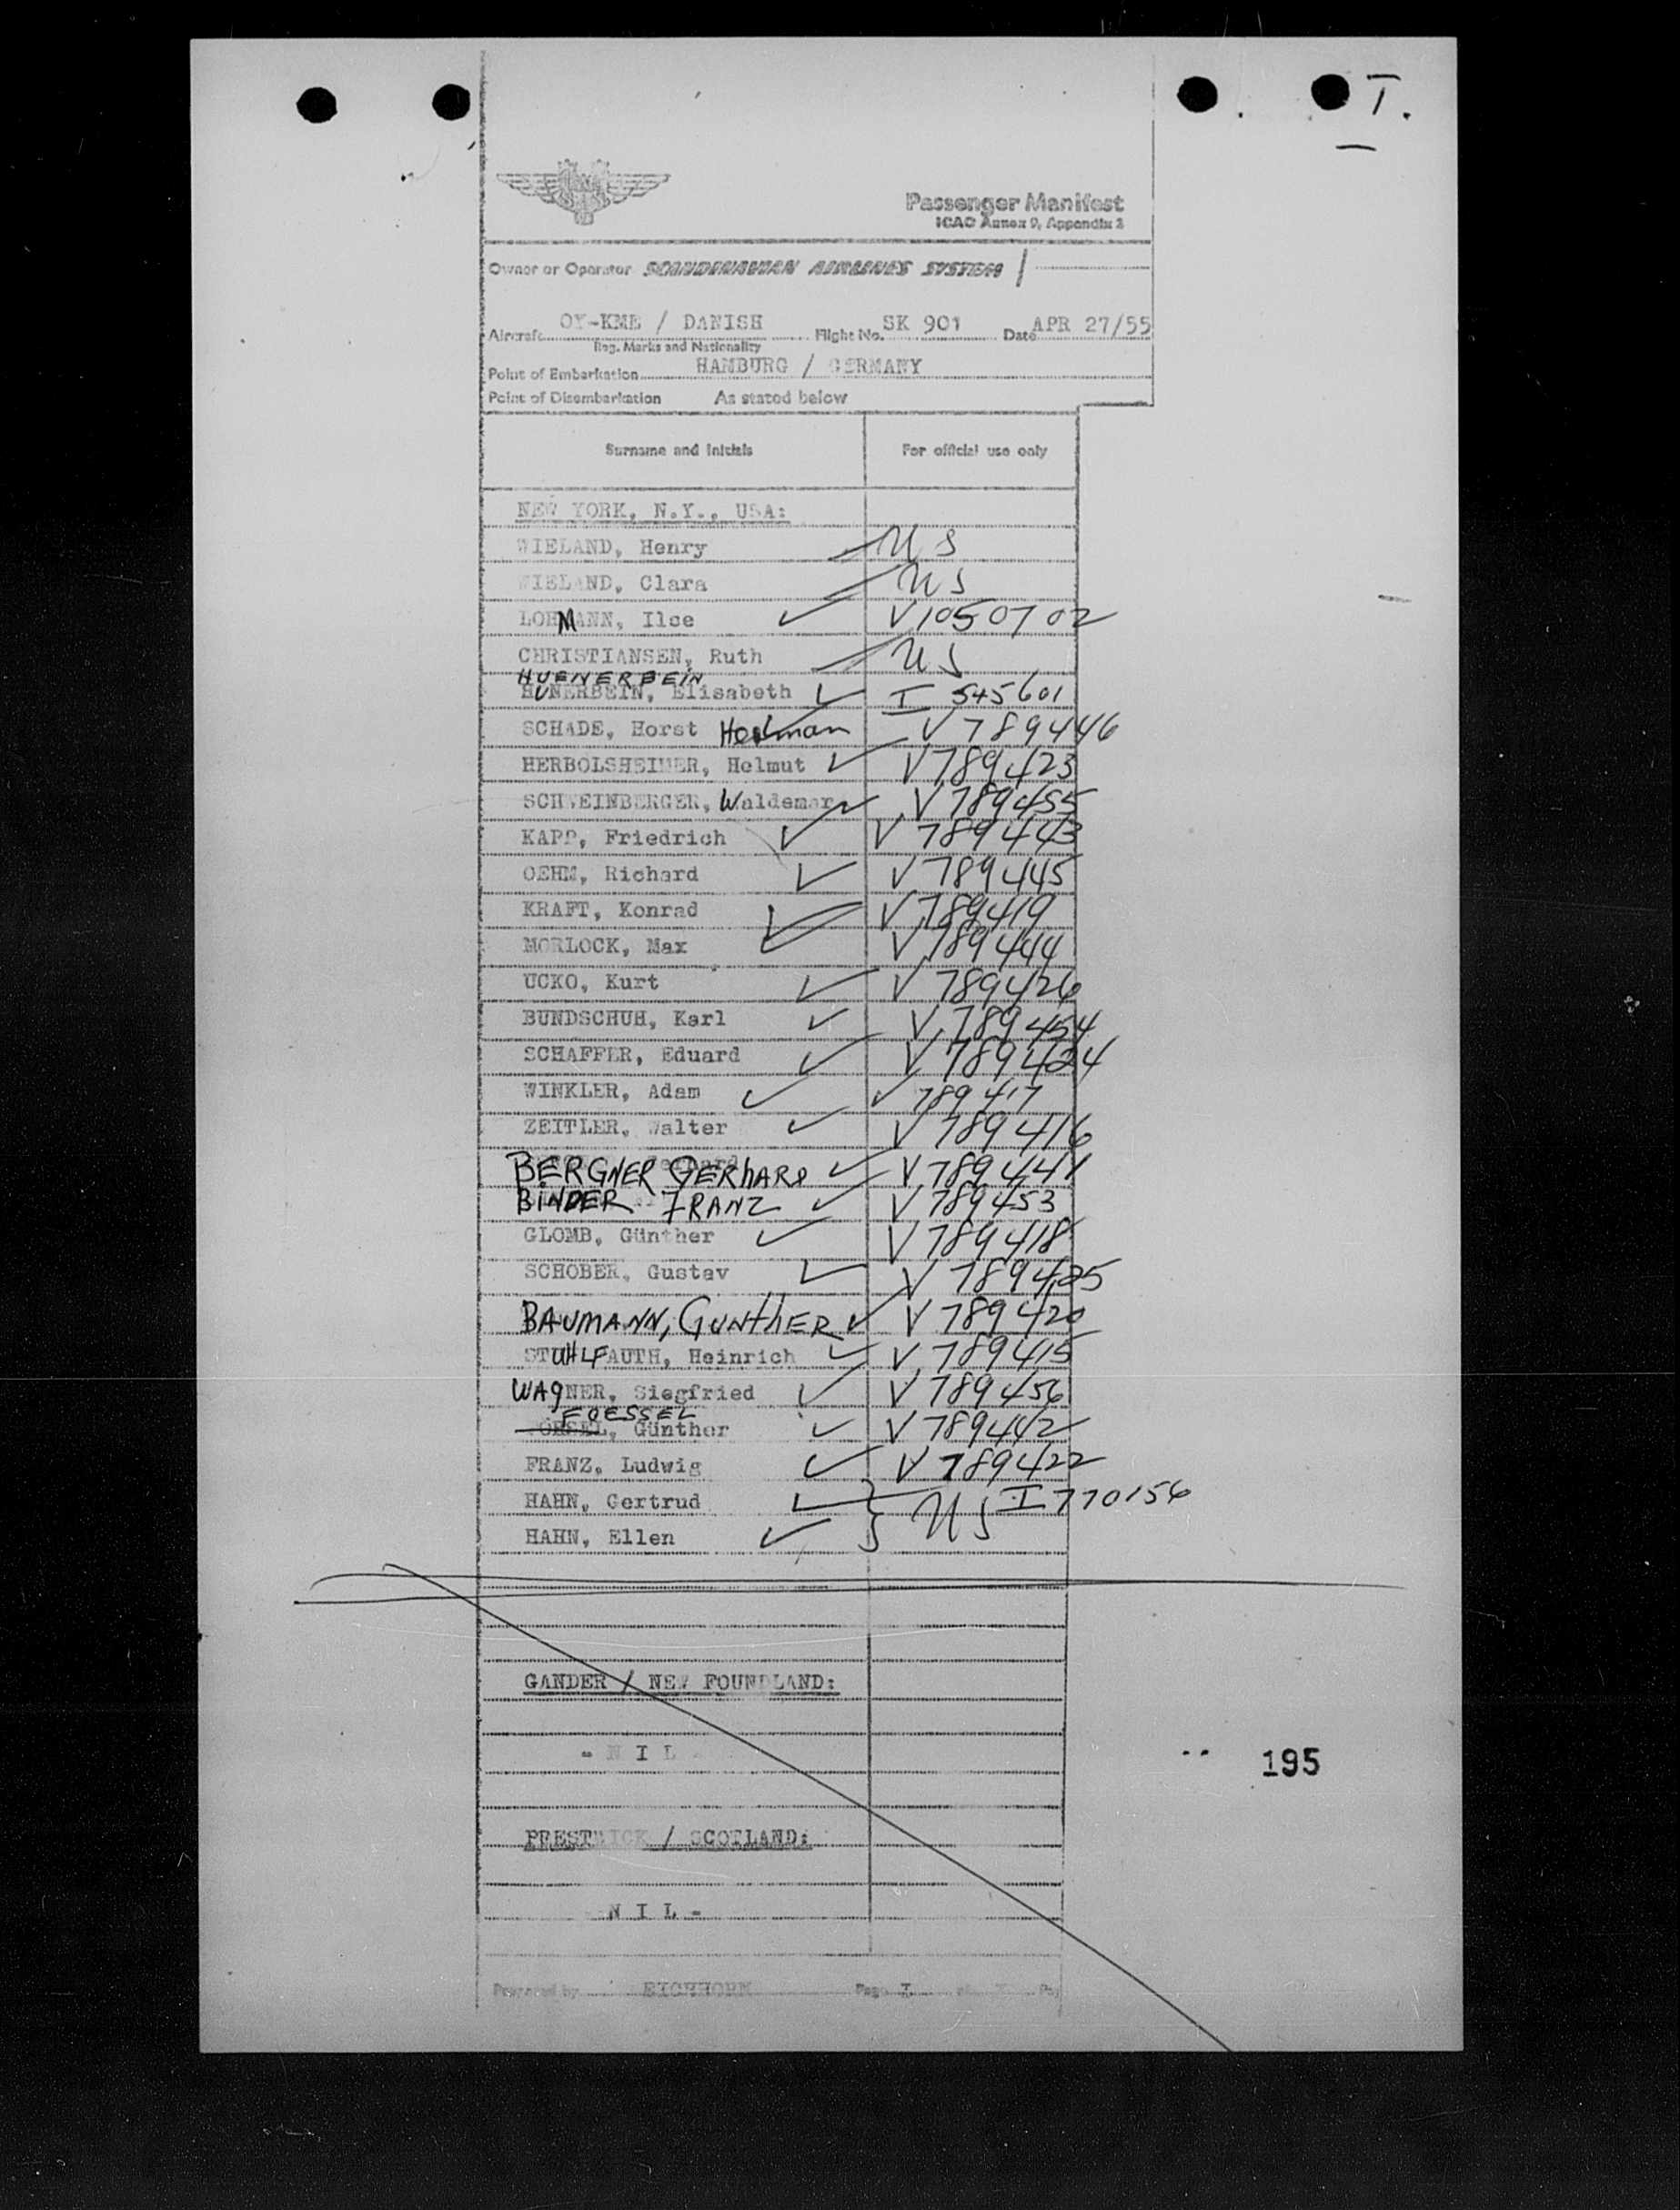 T.
Passenger Manifest
ICAO Annex 9, Appendix 2
Owner or Operator SCANDINAVIAN AIRLINES SYSTEM
Aircraft OY-KME / DANISH Flight No. SK 901 Date APR 27/55
Reg. Marks and Nationality
Point of Embarkation HAMBURG / GERMANY
Point of Disembarkation As stated below
Surname and initials For official use only
NEW YORK, N.Y., USA:
WIELAND, Henry US
WIELAND, Clara US
LOHMANN, Ilse V1050702
CHRISTIANSEN, Ruth US
HUENERBEIN
HUNERBEIN, Elisabeth I 545601
SCHADE, Horst Herman V789446
HERBOLSHEIMER, Helmut V789423
SCHWEINBERGER, Waldemar V789455
KAPP, Friedrich V789443
OEHM, Richard V789445
KRAFT, Konrad V789419
MORLOCK, Max V789444
UCKO, Kurt V789426
BUNDSCHUH, Karl V789454
SCHAFFER, Eduard V789424
WINKLER, Adam V789417
ZEITLER, Walter V789416
BERGNER GERhARD V789441
BiNDER FRANZ V789453
GLOMB, Günther V789418
SCHOBER, Gustav V789425
BAUMANN, GUNThER V789420
STUHLFAUTH, Heinrich V789415
WAGNER, Siegfried V789456
FOESSEL
Günther V789442
FRANZ, Ludwig V789422
HAHN, Gertrud US I770156
HAHN, Ellen
GANDER / NEW FOUNDLAND:
- N I L -
195
PRESTWICK / SCOTLAND:
- N I L -
Prepared by EICHHORN Page I